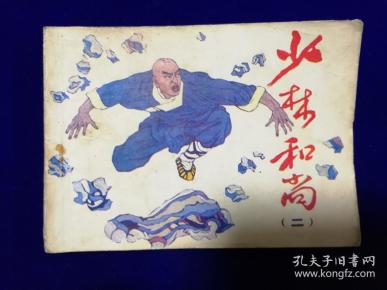 少林和尚
(二)
孔夫子旧书网
www.kongfz.com